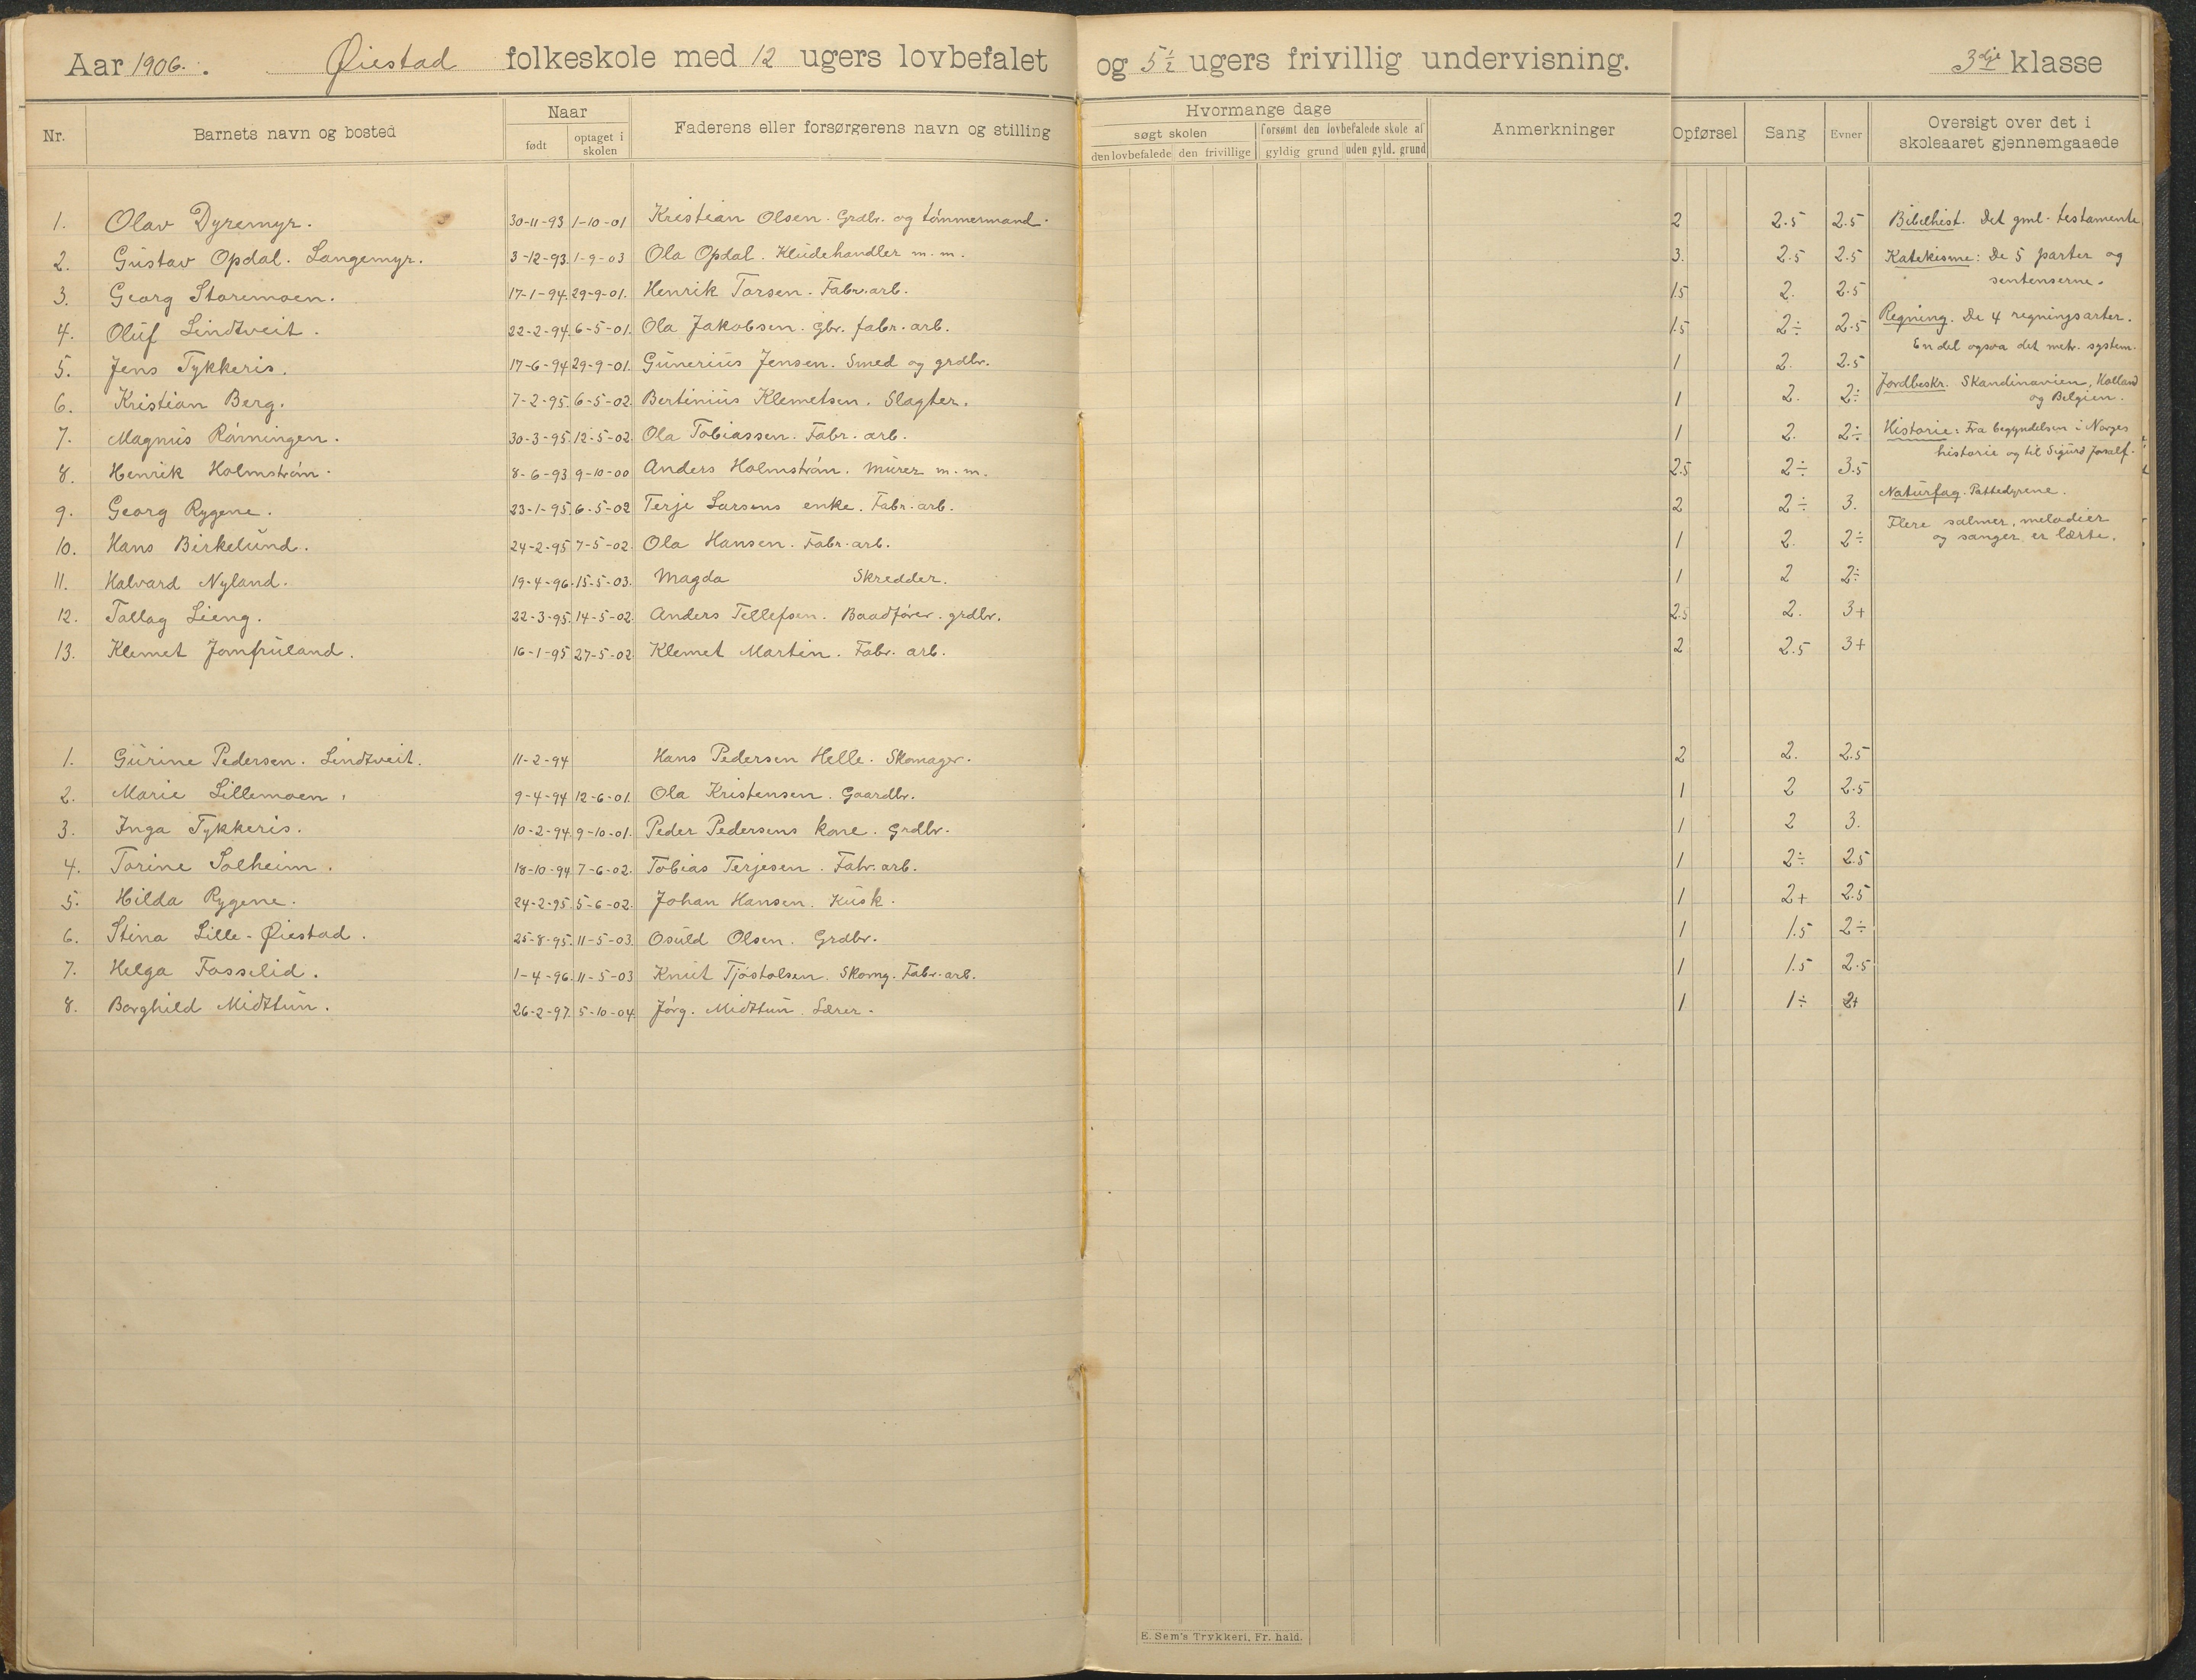 Aar 1906. Øiestad folkeskole med 12 ugers lovbefalet og 5½ ugers frivillig undervisning. 3dje klasse
Nr. Barnets navn og bosted Naar født optaget i skolen Faderens eller forsørgerens navn og stilling Hvormange dage søgt skolen den lovbefalede den frivillige forsømt den lovbefalede skole af gyldig grund uden gyld. grund Anmerkninger Opførsel Sang Evner Oversigt over det i skoleaaret gjennemgaaede
1. Olav Dyremyr. 30-11-93 1-10-01 Kristian Olsen. Grdbr. og tømmermand. 2 2.5 2.5 Bibelhist. Det gml. testamente
2. Gustav Opdal. Langemyr. 3-12-93. 1-9-03 Ola Opdal. Kludehandler m.m. 3. 2.5 2.5 Katekisme: De 5 parter og
sentenserne.
3. Georg Storemoen. 17-1-94. 29-9-01. Henrik Torsen. Fabr.arb. 1.5 2. 2.5
4. Oluf Lindtveit. 22-2-94. 6-5-01. Ola Jakobsen. gbr. fabr.arb. 1.5 2÷ 2.5 Regning. De 4 regningsarter.
En del ogsaa det metr. system.
5. Jens Tykkeris. 17-6-94 29-9-01. Gunerius Jensen. Smed og grdbr. 1 2. 2.5
6. Kristian Berg. 7-2-95. 6-5-02. Bertinius Klemetsen. Slagter. 1 2. 2÷ Jordbeskr. Skandinavien, Holland
og Belgien.
7. Magnus Rørningen. 30-3-95. 12-5-02 Ola Tobiassen. Fabr.arb. 1 2. 2÷ Historie: Fra begyndelsen i Norges
historie og til Sigurd Jorsalf.
8. Henrik Holmstrøm. 8-6-93 9-10-00 Anders Holmstrøm. Murer m.m. 2.5 2÷ 3.5
9. Georg Rygene. 23-1-95. 6-5-02 Terje Larsens enke. Fabr.arb. 2 2÷ 3. Naturfag. Pattedyrene.
Flere salmer, melodier
10. Hans Birkelund. 24-2-95 7-5-02. Ola Hansen. Fabr.arb. 1 2. 2÷ og sanger er lærte.
11. Halvard Nyland. 19-4-96. 15-5-03. Magda Skredder. 1 2 2÷
12. Tallag Lieng. 22-3-95. 14-5-02. Anders Tellefsen. Baadfører. grdbr. 2.5 2. 3+
13. Klemet Jomfruland. 16-1-95 27-5-02 Klemet Martin. Fabr. arb. 2 2.5 3+
1. Gurine Pedersen. Lindtveit. 11-2-94 Hans Pedersen Helle. Skomager. 2 2. 2.5
2. Marie Lillemoen. 9-4-94 12-6-01. Ola Kristensen. Gaardbr. 1 2 2.5
3. Inga Tykkeris. 10-2-94. 9-10-01. Peder Pedersens kone. Grdbr. 1 2 3.
4. Torine Solheim. 18-10-94 7-6-02. Tobias Terjesen. Fabr.arb. 1 2÷ 2.5
5. Hilda Rygene. 24-2-95 5-6-02. Johan Hansen. Kusk. 1 2+ 2.5
6. Stina Lille-Øiestad. 25-8-95. 11-5-03. Osuld Olsen. Grdbr. 1 1.5 2÷
7. Helga Fosselid. 1-4-96. 11-5-03 Knut Tjøstolsen. Skomg. Fabr.arb. 1 1.5 2.5
8. Borghild Midttun. 26-2-97. 5-10-04. Jørg. Midttun. Lærer. 1 1÷ 2+
E. Sem's Trykkeri, Fr. hald.